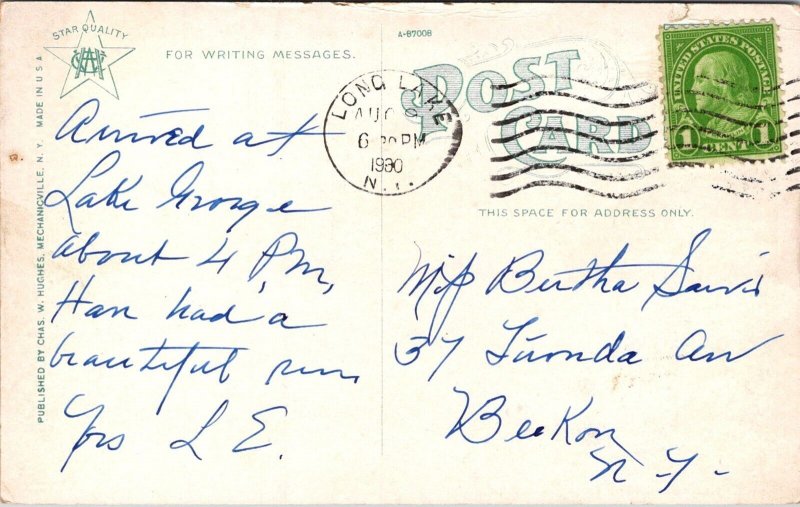 STAR QUALITY
FOR WRITING MESSAGES.
A-87008
POST CARD
THIS SPACE FOR ADDRESS ONLY.
PUBLISHED BY CHAS. W. HUGHES, MECHANICVILLE, N. Y. MADE IN U S A
LONG LAKE
AUG
6 PM
1930
N.Y.
UNITED STATES POSTAGE
1 CENT 1
Arrived at
Lake George
about 4 P.M.
Have had a
beautiful run
Yrs L E.
Miss Bertha
37 Av
Beekon
N.Y.